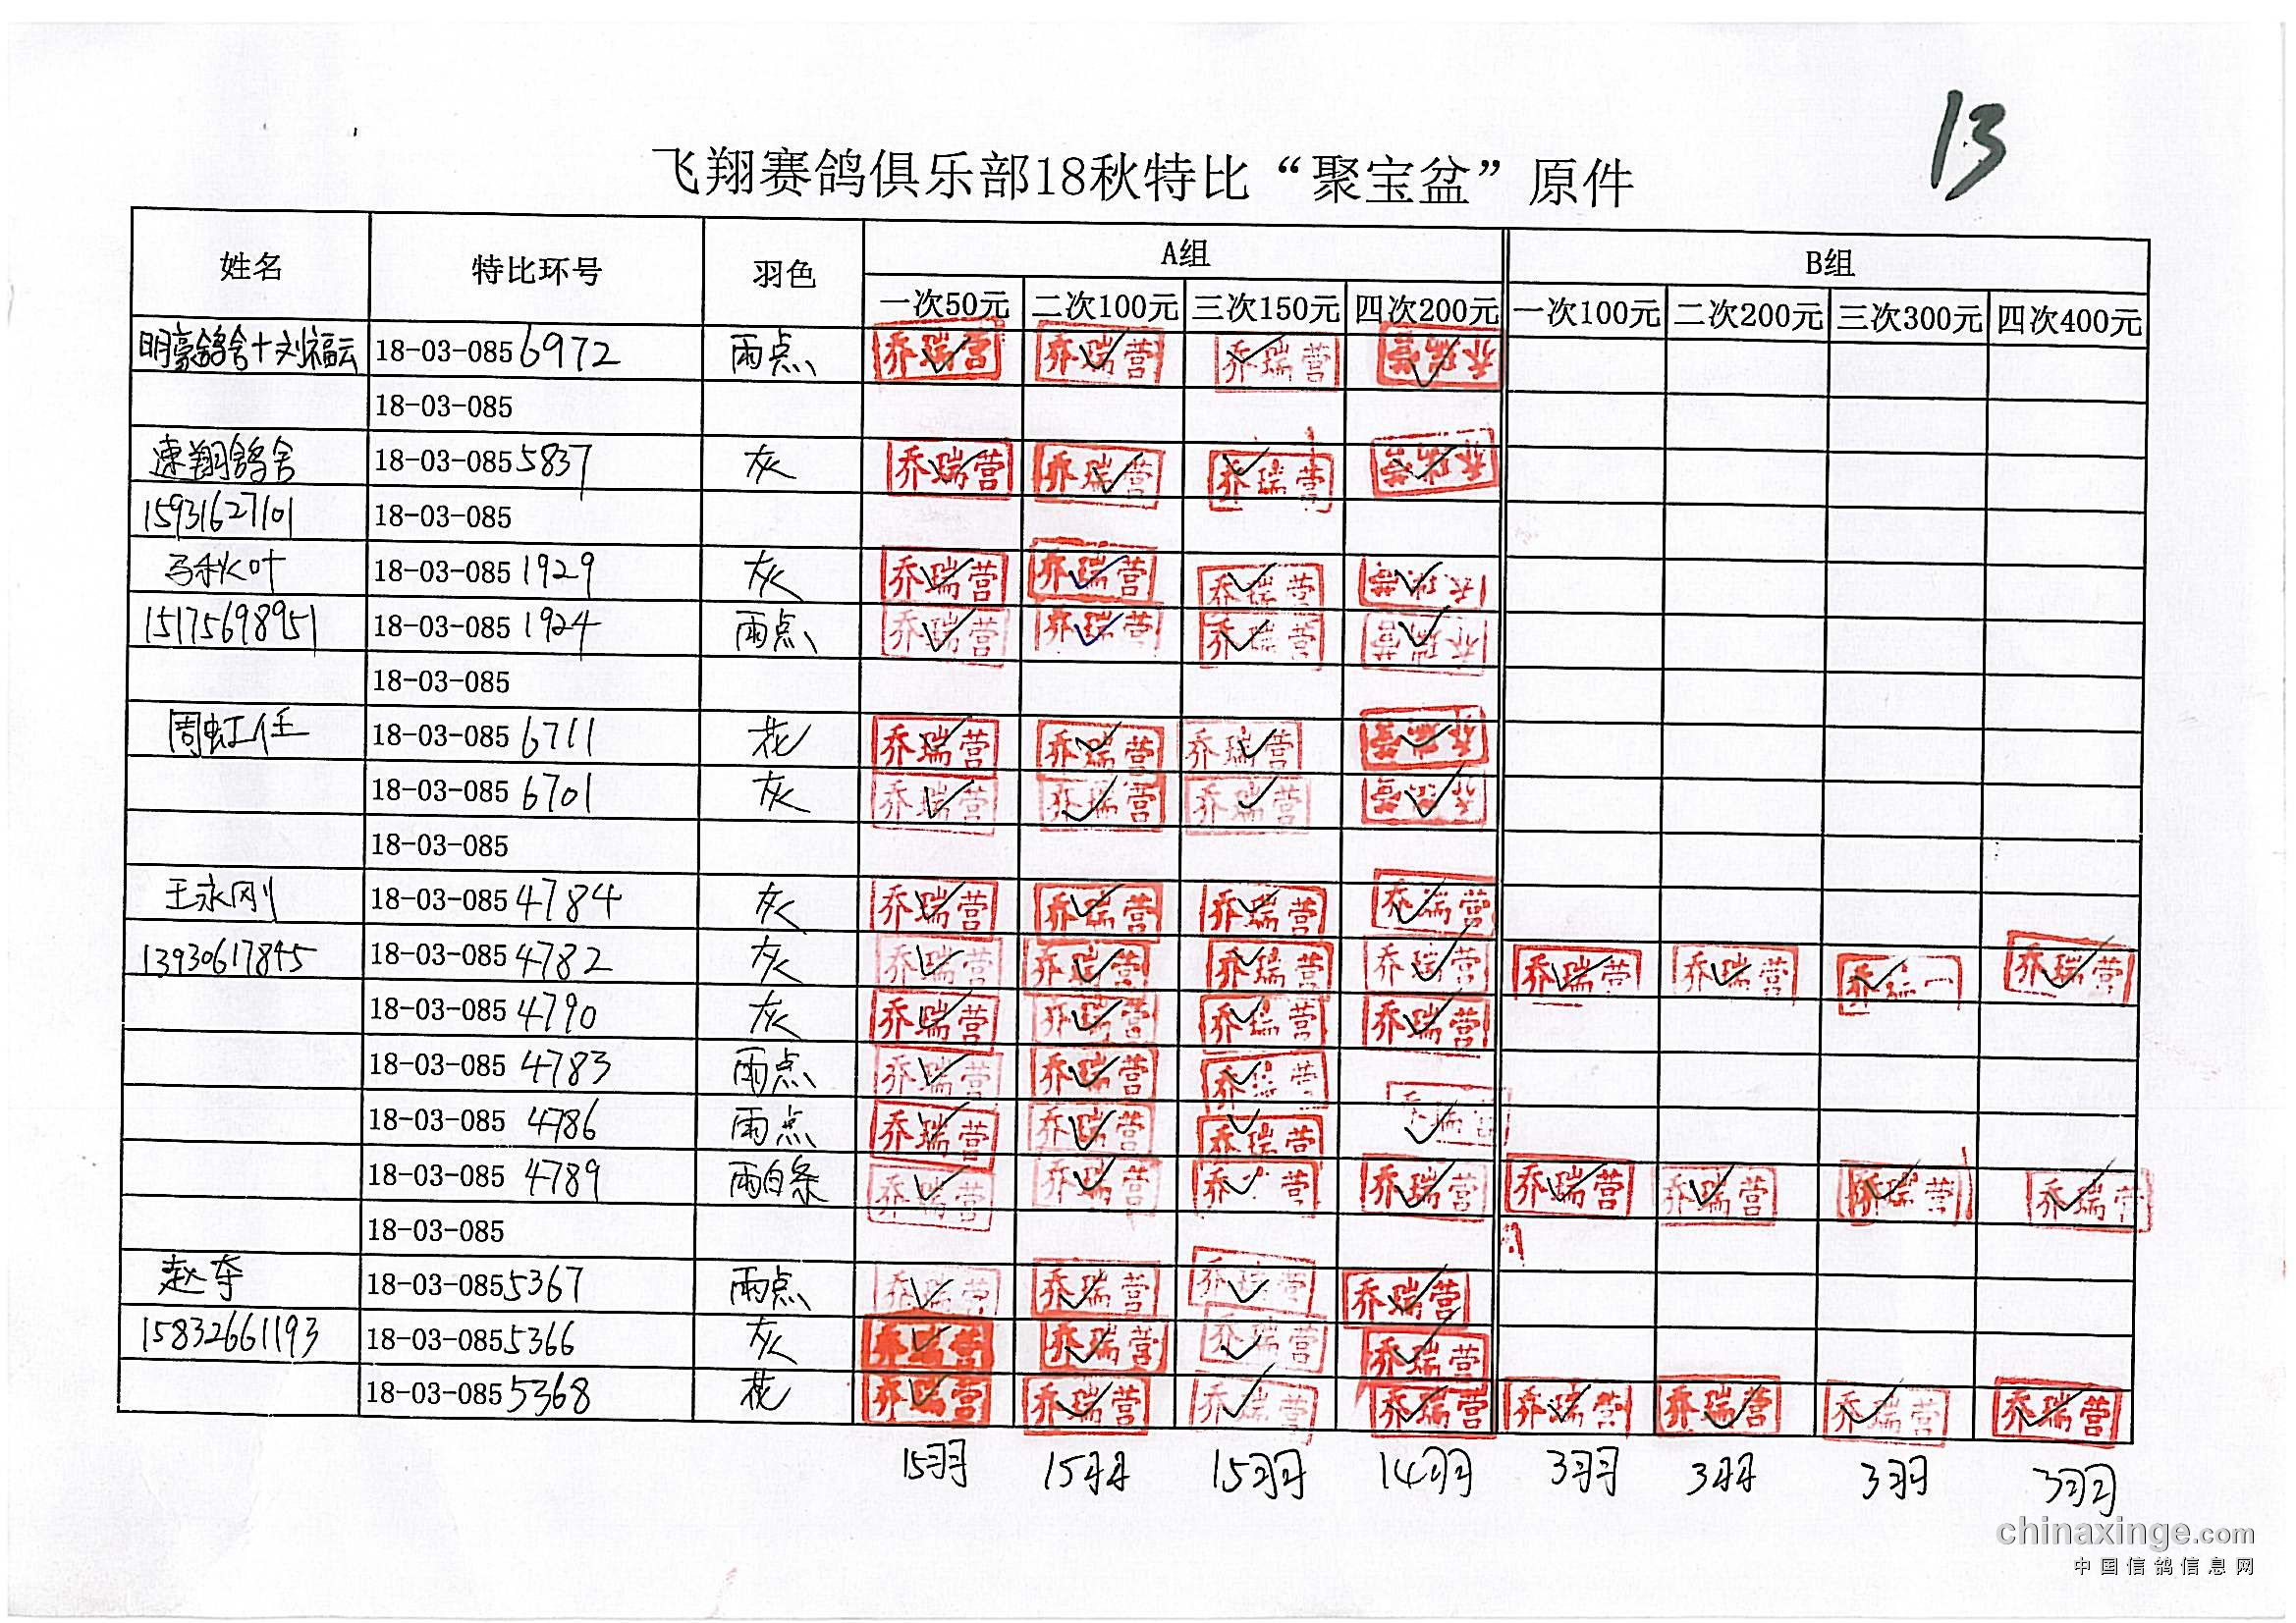 13
飞翔赛鸽俱乐部18秋特比“聚宝盆”原件
姓名 特比环号 羽色 A组 B组
一次50元 二次100元 三次150元 四次200元 一次100元 二次200元 三次300元 四次400元
明豪鸽舍+刘福云 18-03-085 6972 雨点 乔瑞营 乔瑞营 乔瑞营 乔瑞营
18-03-085
速翔鸽舍 18-03-085 5837 灰 乔瑞营 乔瑞营 乔瑞营 乔瑞营
15931627101 18-03-085
马秋叶 18-03-085 1929 灰 乔瑞营 乔瑞营 乔瑞营 乔瑞营
15175698951 18-03-085 1924 雨点 乔瑞营 乔瑞营 乔瑞营 乔瑞营
18-03-085
周虹任 18-03-085 6711 花 乔瑞营 乔瑞营 乔瑞营 乔瑞营
18-03-085 6701 灰 乔瑞营 乔瑞营 乔瑞营 乔瑞营
18-03-085
王永刚 18-03-085 4784 灰 乔瑞营 乔瑞营 乔瑞营 乔瑞营
13930617845 18-03-085 4782 灰 乔瑞营 乔瑞营 乔瑞营 乔瑞营 乔瑞营 乔瑞营 乔瑞营 乔瑞营
18-03-085 4790 灰 乔瑞营 乔瑞营 乔瑞营 乔瑞营
18-03-085 4783 雨点 乔瑞营 乔瑞营 乔瑞营
18-03-085 4786 雨点 乔瑞营 乔瑞营 乔瑞营 乔瑞营
18-03-085 4789 雨白条 乔瑞营 乔瑞营 乔瑞营 乔瑞营 乔瑞营 乔瑞营 乔瑞营 乔瑞营
18-03-085
赵夺 18-03-085 5367 雨点 乔瑞营 乔瑞营 乔瑞营 乔瑞营
15832661193 18-03-085 5366 灰 乔瑞营 乔瑞营 乔瑞营 乔瑞营
18-03-085 5368 花 乔瑞营 乔瑞营 乔瑞营 乔瑞营 乔瑞营 乔瑞营 乔瑞营 乔瑞营
15羽 15羽 15羽 14羽 3羽 3羽 3羽 3羽
chinaxinge.com
中国信鸽信息网